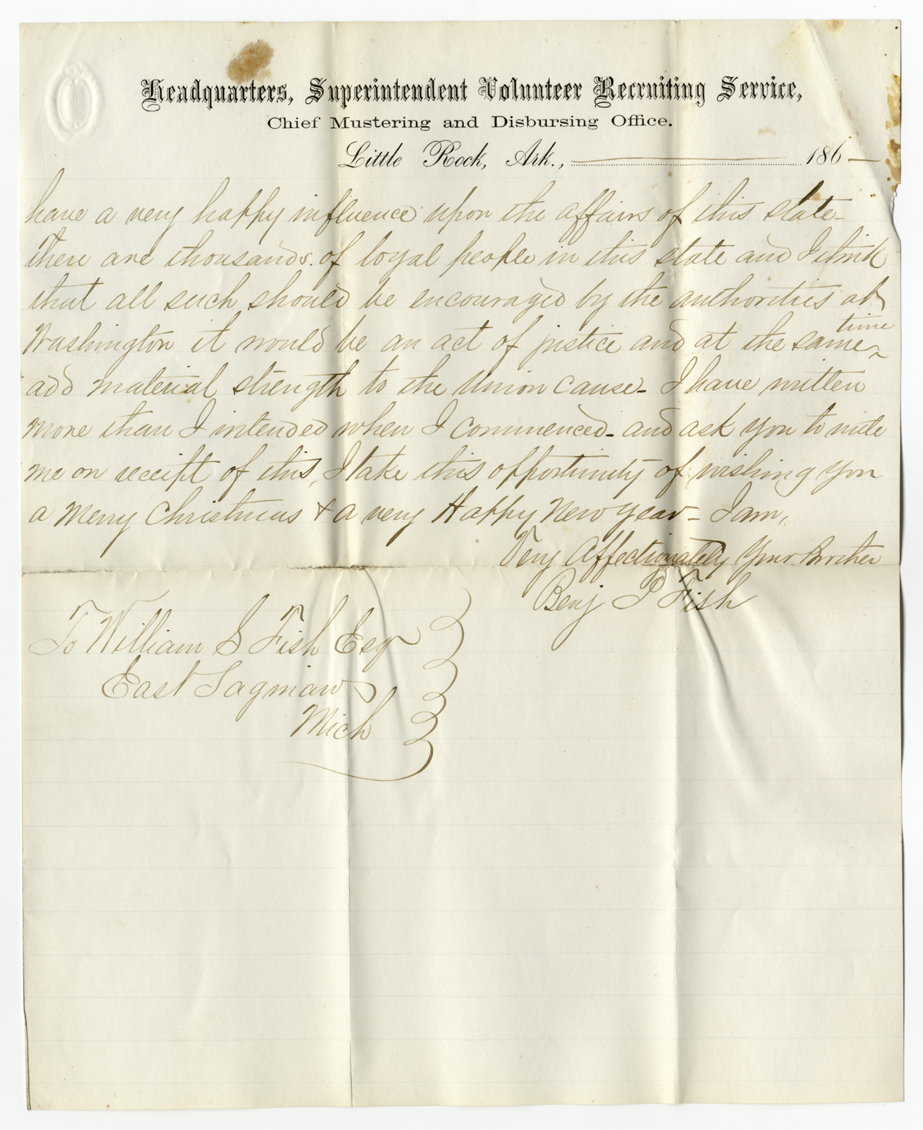 Headquarters, Superintendent Volunteer Recruiting Service,
Chief Mustering and Disbursing Office.
Little Rock, Ark., 186
have a very happy influence upon the affairs of this state
there are thousands of loyal people in this state and I think
that all such should be encouraged by the authorities at
Washington it would be an act of justice and at the same time
add material strength to the Union cause - I have written
more than I intended when I commenced - and ask you to write
me on receipt of this, I take this opportunity of wishing you
a Merry Christmas & a very Happy New year - I am,
Very Affectionately Your Brother
Benj P Fish
To William S Fish Esq
East Saginaw
Mich